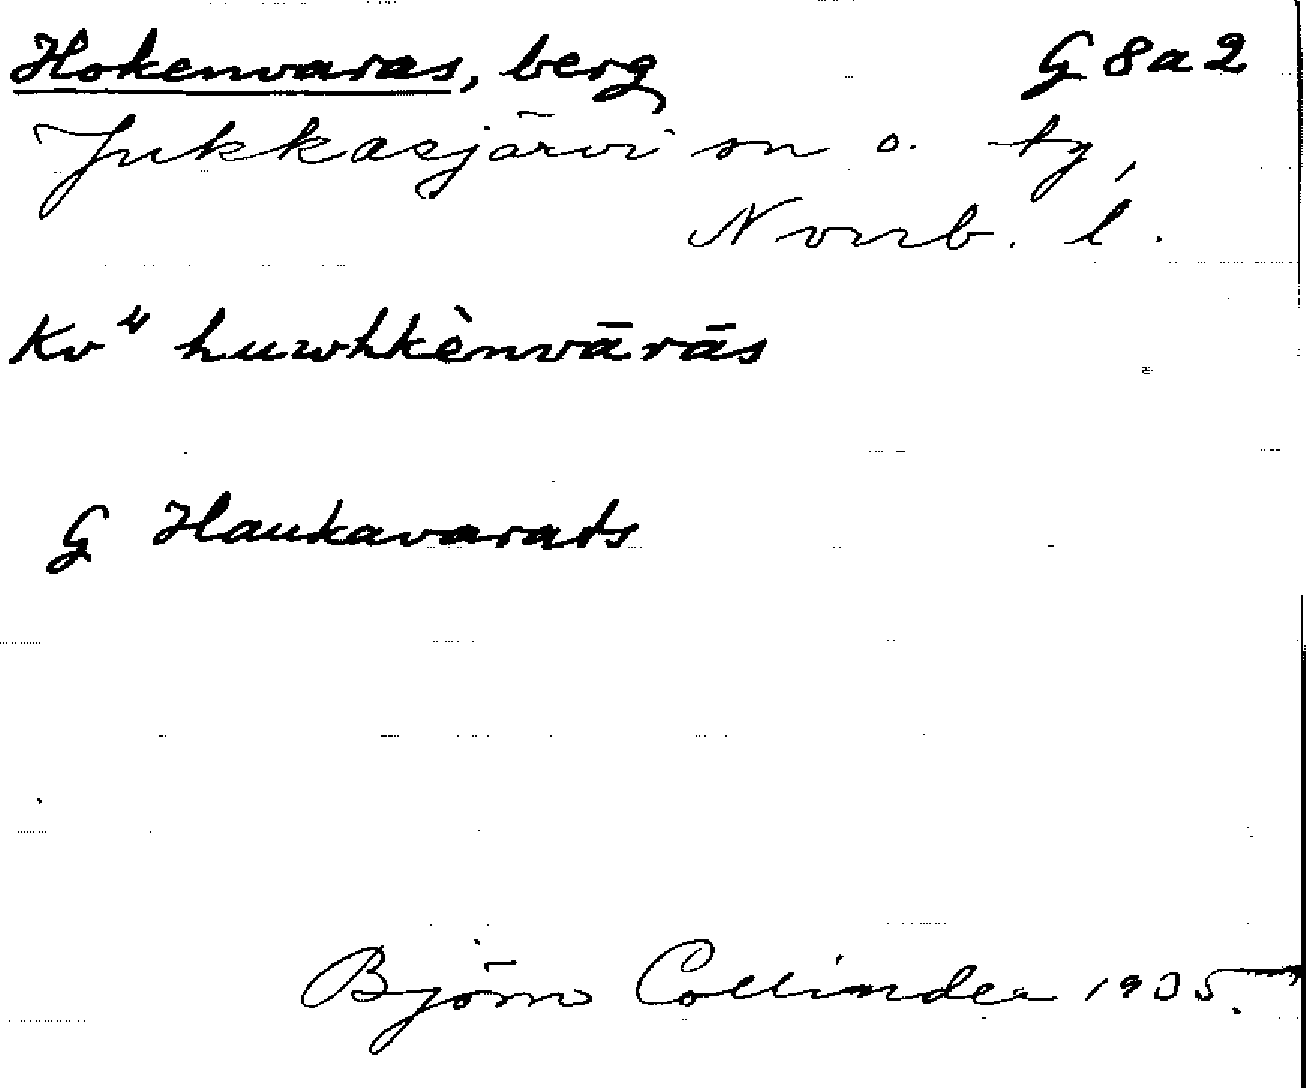 Hokenvaras, berg G 8 a 2
Jukkasjärvi sn o. tg,
Norrb. l.
Kv" huwhkènvārās
G Haukavarats
Björn Collinder 1935.